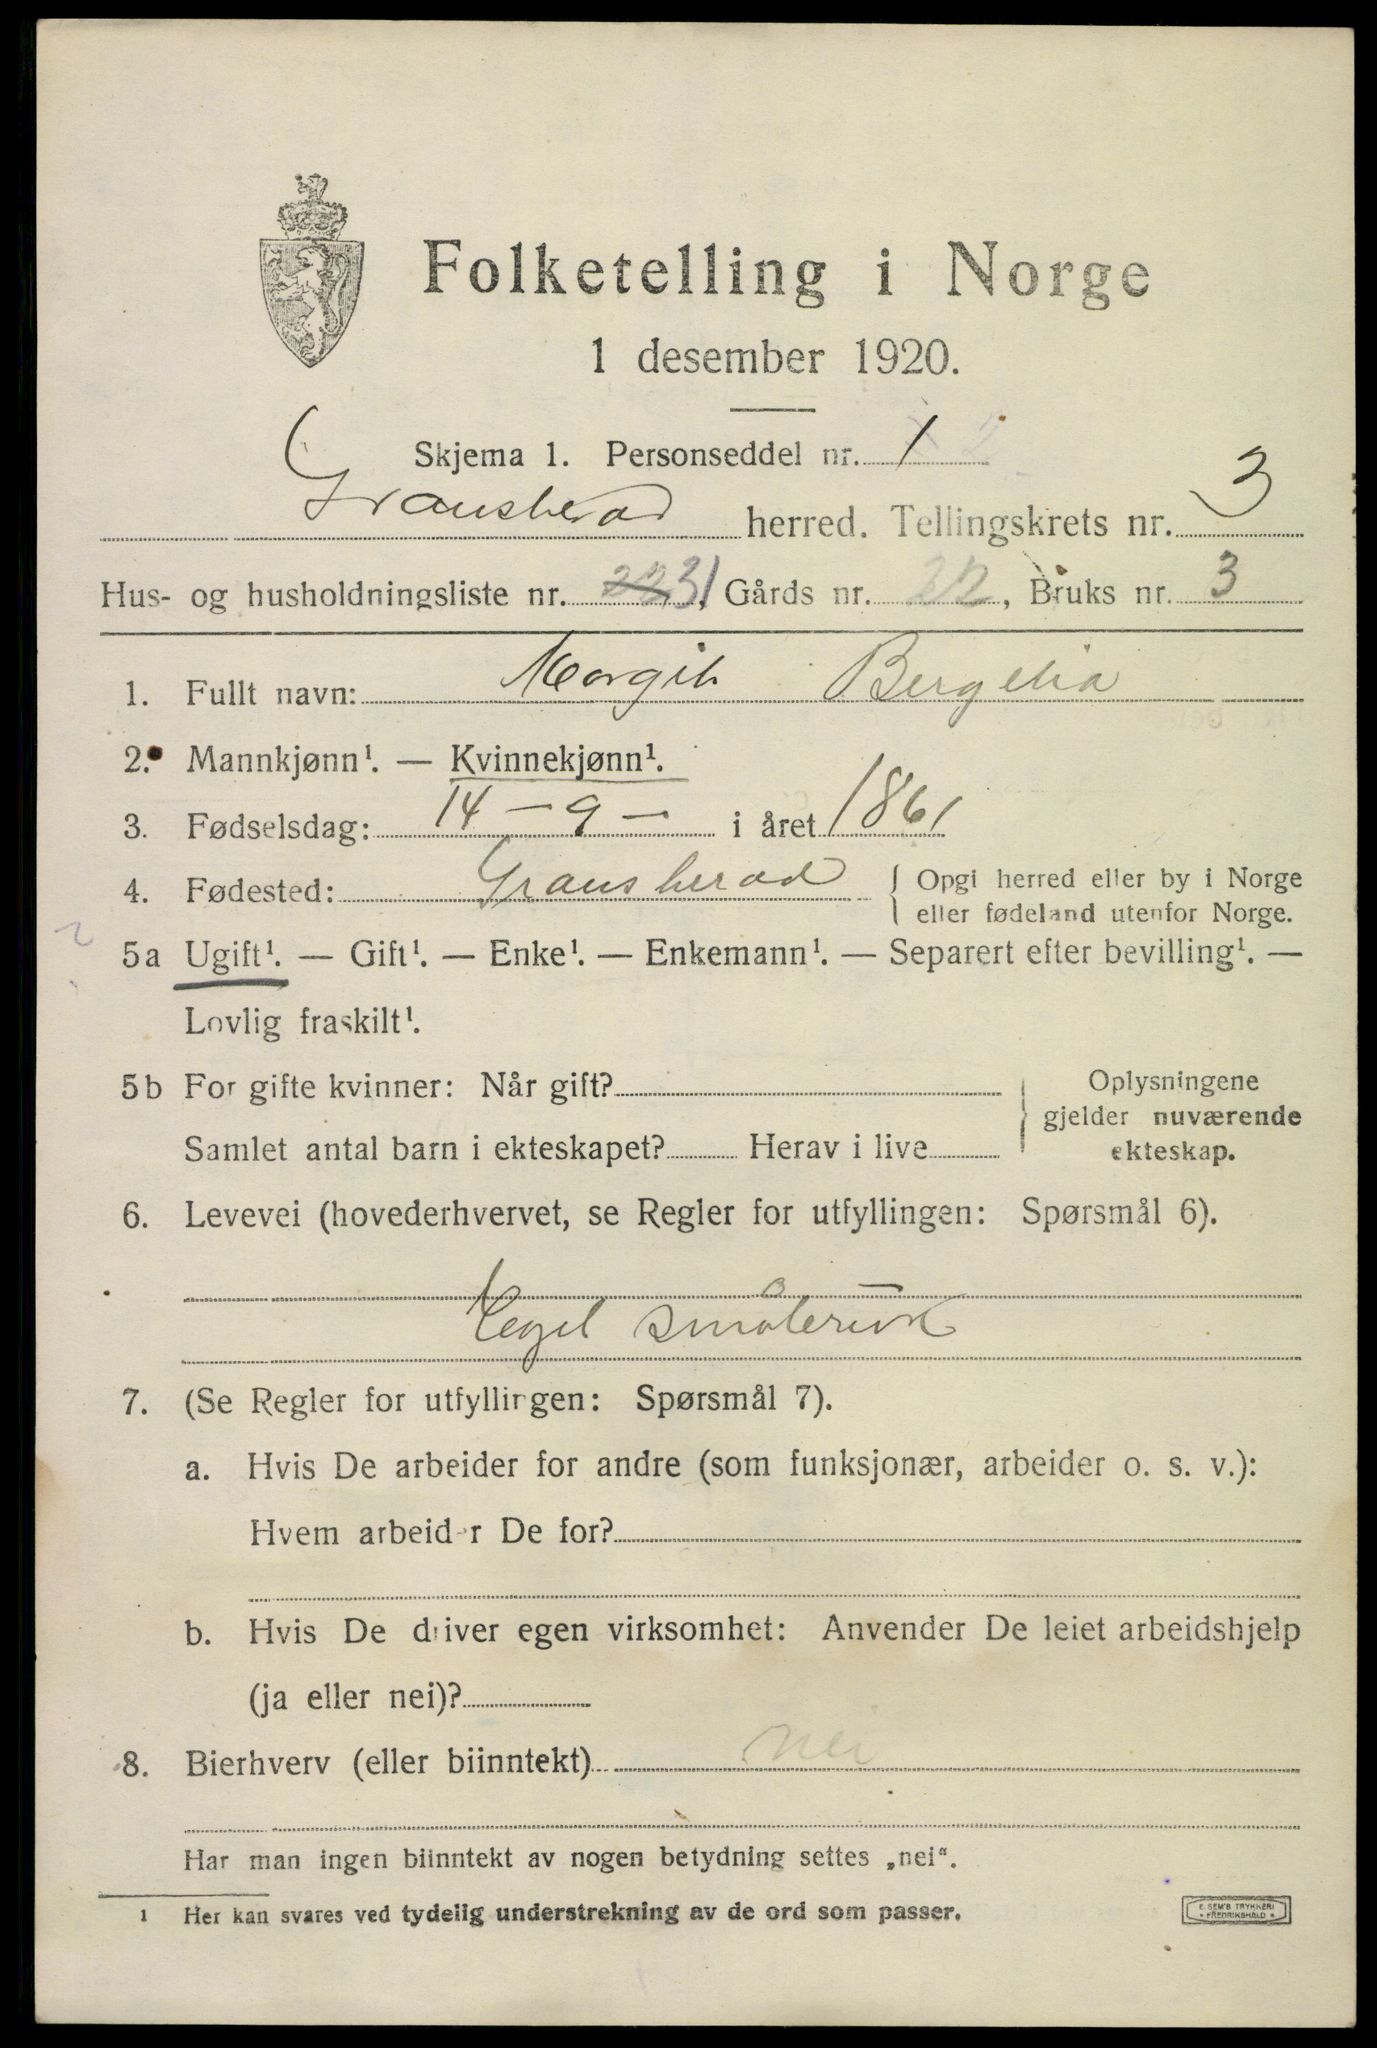 Folketelling i Norge
1 desember 1920.
Skjema 1. Personseddel nr. 1 2
Gransherad herred. Tellingskrets nr. 3
Hus- og husholdningsliste nr. 22 31, Gårds nr. 22, Bruks nr. 3
1. Fullt navn: Margit Bergelia
2. Mannkjønn¹. — Kvinnekjønn¹.
3. Fødselsdag: 14 - 9 - i året 1861
4. Fødested: Gransherad { Opgi herred eller by i Norge
eller fødeland utenfor Norge.
5a Ugift¹. — Gift¹. — Enke¹. — Enkemann¹. — Separert efter bevilling¹. —
Lovlig fraskilt¹.
5b For gifte kvinner: Når gift? } Oplysningene
gjelder nuværende
Samlet antal barn i ekteskapet? Herav i live ekteskap.
6. Levevei (hovederhvervet, se Regler for utfyllingen: Spørsmål 6).
7. (Se Regler for utfyllingen: Spørsmål 7).
a. Hvis De arbeider for andre (som funksjonær, arbeider o. s. v.):
Hvem arbeider De for?
b. Hvis De driver egen virksomhet: Anvender De leiet arbeidshjelp
(ja eller nei)?
8. Bierhverv (eller biinntekt) nei
Har man ingen biinntekt av nogen betydning settes „nei“.
1 Her kan svares ved tydelig understrekning av de ord som passer.
E. SEM'S TRYKKERI
• FREDRIKSHALD •